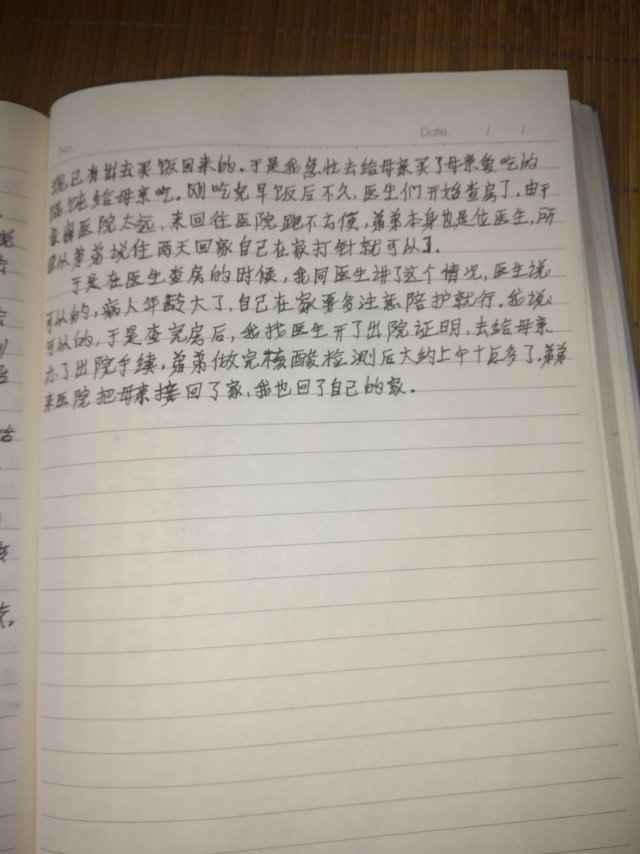 No.
Date / /
现已有出去买饭回来的。于是我急忙去给母亲买了母亲爱吃的
馄饨给母亲吃。刚吃完早饭后不久,医生们开始查房了。由于
医院太远,来回往医院跑不方便,弟弟本身也是位医生,所
以弟弟说住两天回家自己在家打针就可以了。
于是在医生查房的时候,我同医生讲了这个情况,医生说
可以的,病人年龄大了,自己在家要多注意陪护就行。我说
可以的,于是查完房后,我找医生开了出院证明,去给母亲
办了出院手续,弟弟做完核酸检测后大约上午十点多了,弟弟
来医院把母亲接回了家,我也回了自己的家。